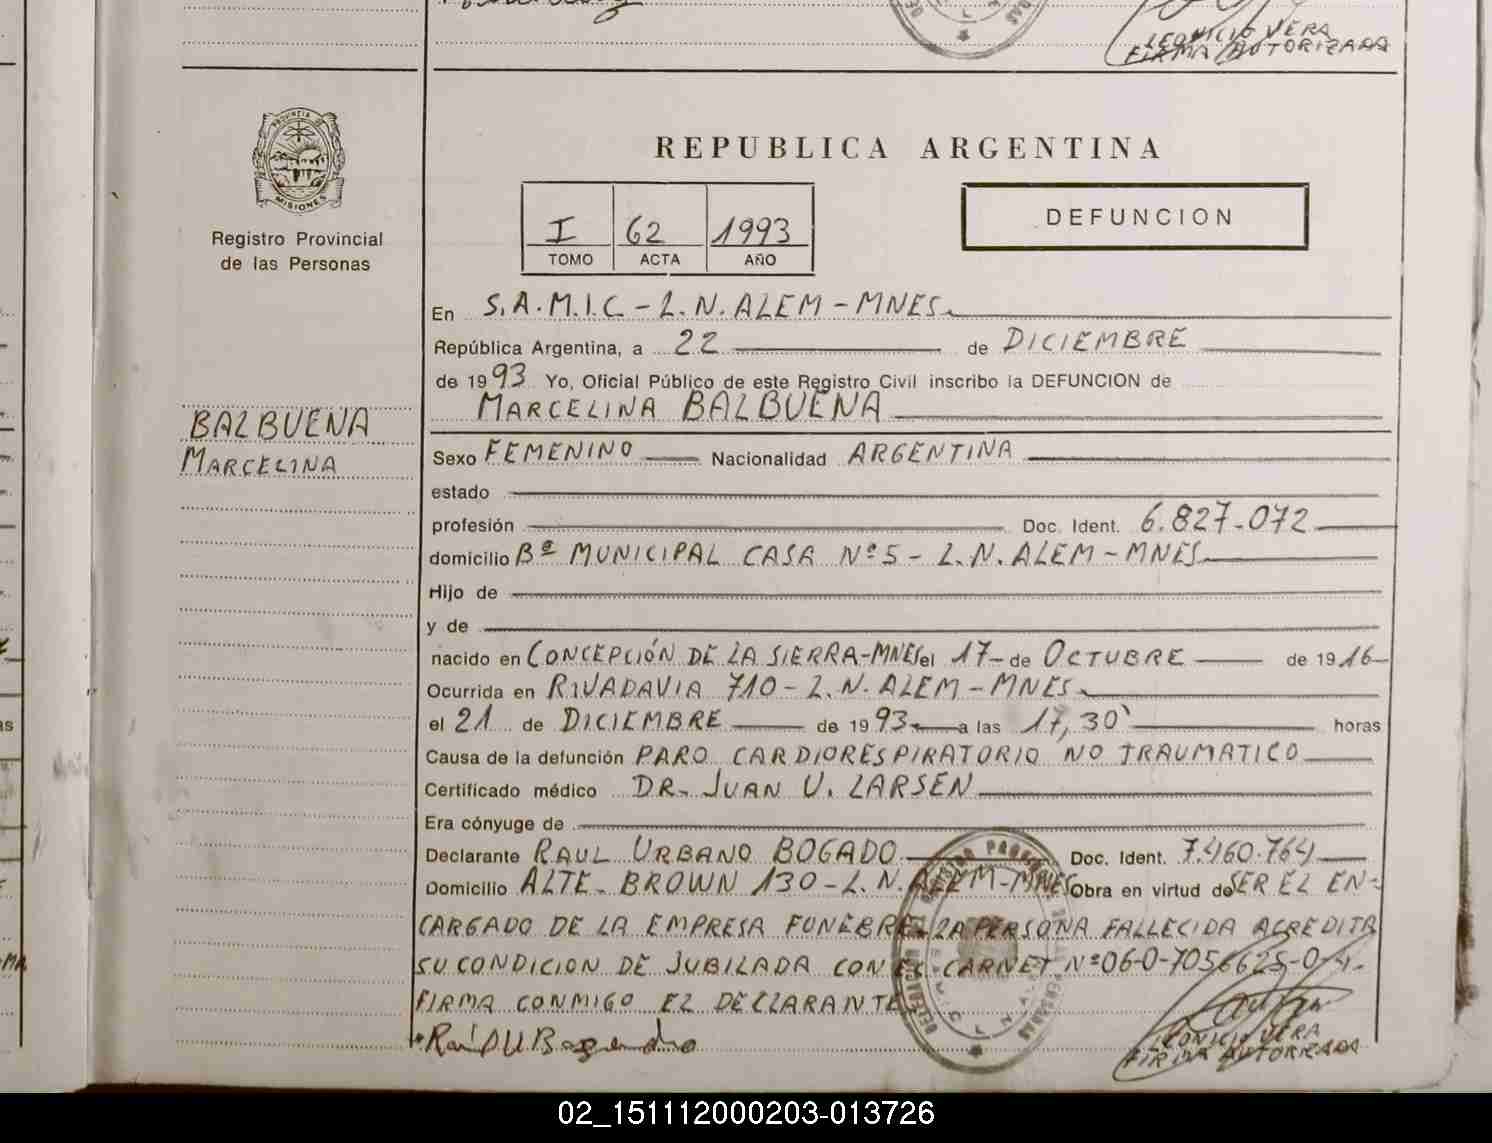 LEONICIO VERA
FIRMA AUTORIZADA
PROVINCIA DE
MISIONES
Registro Provincial
de las Personas
BALBUENA
MARCELINA
REPUBLICA ARGENTINA
I 62 1993
TOMO ACTA AÑO
DEFUNCION
En S.A.M.I.C - L.N. ALEM - MNES
República Argentina, a 22 de DICIEMBRE
de 1993 Yo, Oficial Público de este Registro Civil inscribo la DEFUNCION de
MARCELINA BALBUENA
Sexo FEMENINO Nacionalidad ARGENTINA
estado
profesión Doc. Ident. 6.827.072
domicilio Bº MUNICIPAL CASA Nº 5 - L.N. ALEM - MNES
Hijo de
y de
nacido en CONCEPCIÓN DE LA SIERRA-MNES el 17 de OCTUBRE de 1916
Ocurrida en RIVADAVIA 710 - L.N. ALEM - MNES
el 21 de DICIEMBRE de 1993 a las 17,30 horas
Causa de la defunción PARO CARDIORESPIRATORIO NO TRAUMATICO
Certificado médico DR. JUAN U. LARSEN
Era cónyuge de
Declarante RAUL URBANO BOGADO Doc. Ident. 7.460.764
Domicilio ALTE. BROWN 130 - L.N. ALEM - MNES Obra en virtud de SER EL EN-
CARGADO DE LA EMPRESA FUNEBRE. LA PERSONA FALLECIDA ACREDITA
SU CONDICION DE JUBILADA CON EL CARNET Nº 06-0-7056625-0-4.
FIRMA CONMIGO EL DECLARANTE
LEONICIO VERA
FIRMA AUTORIZADA
02_151112000203-013726